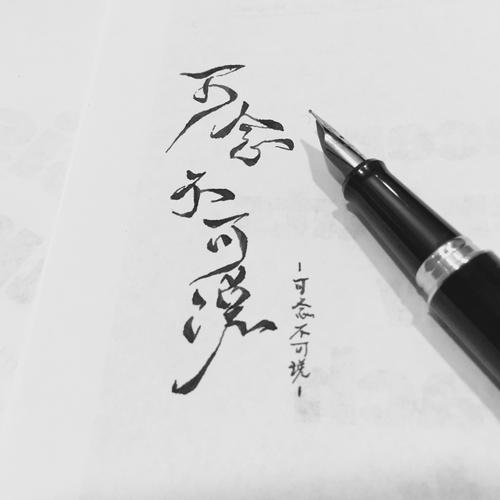 可念不可说
-可念不可说-